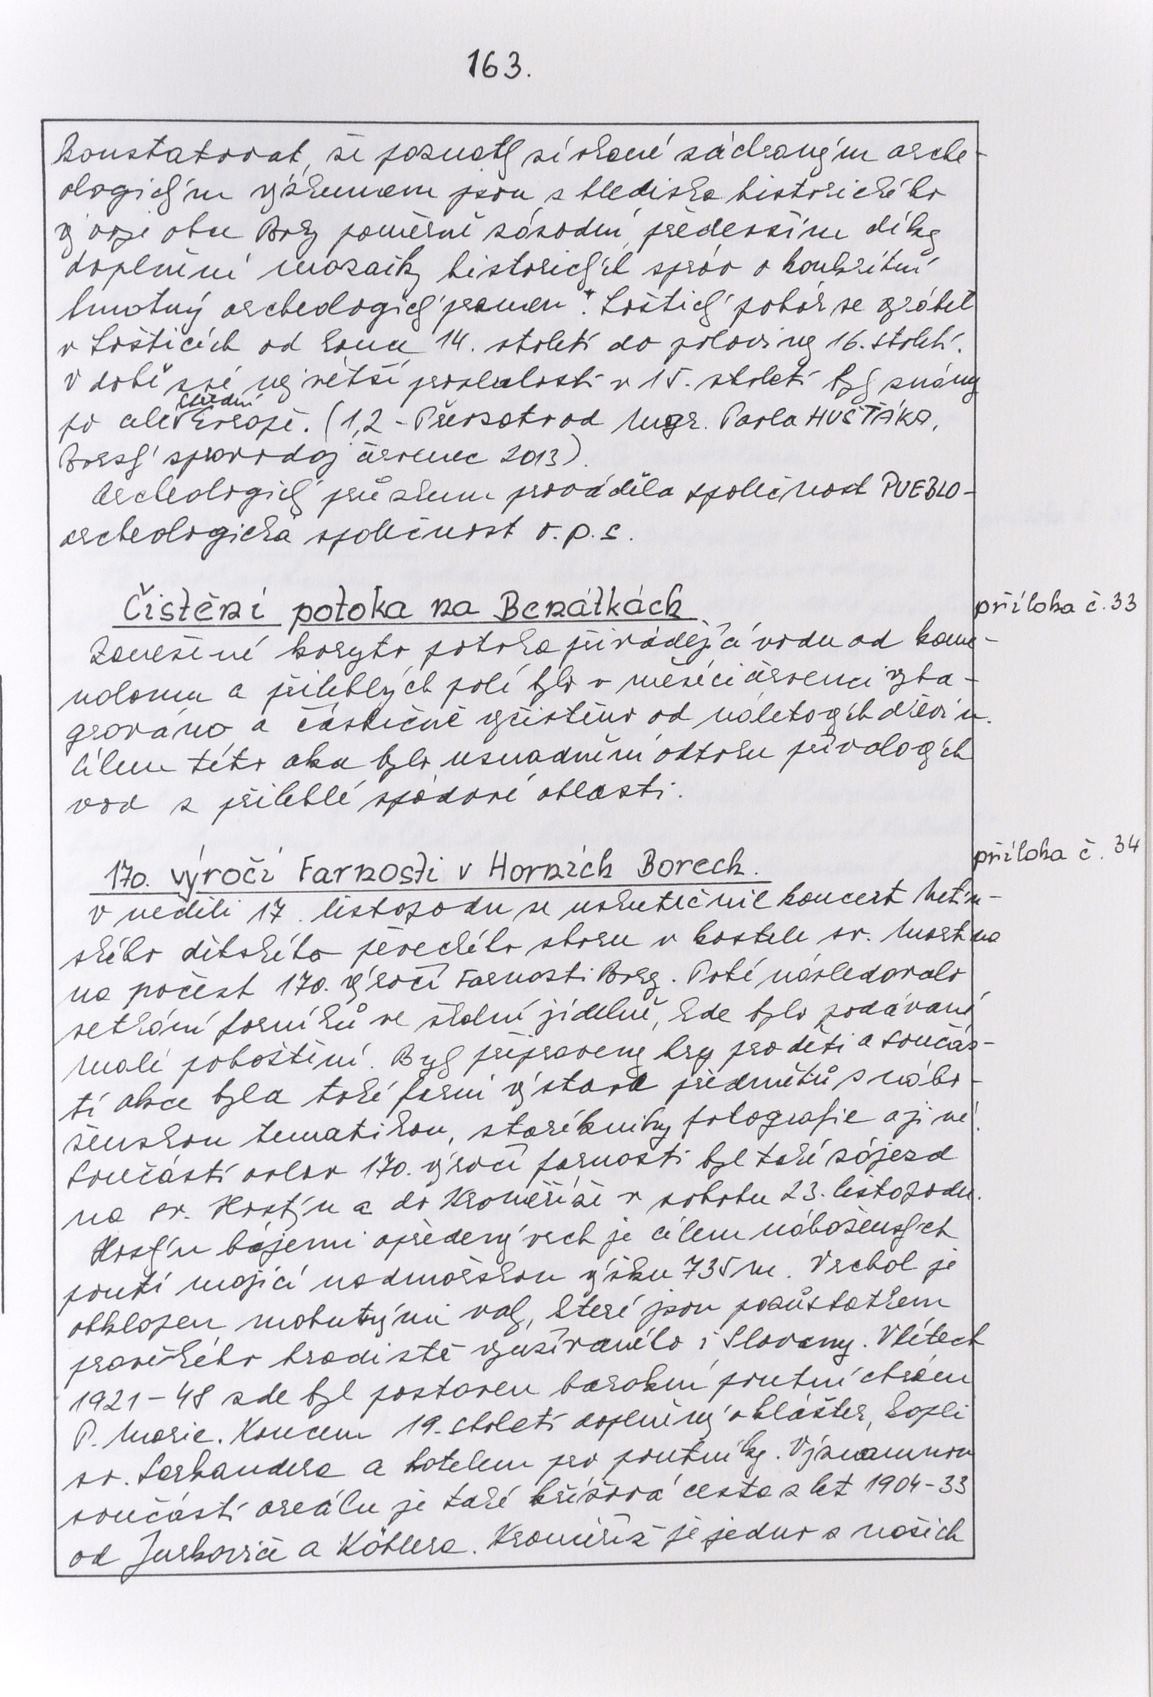 163.
konstatovat, že poznatky získané záchranným arche-
ologickým výzkumem jsou z hlediska historického
vývoje obce Bory poměrně zásodní, především díky
doplnění mozaiky historických zpráv o konkrétní
hmotný archeologický pramen". Loštický pohár se vyráběl
v Lošticích od konce 14. století do poloviny 16. století.
V době své největší proslulosti v 15. století byl známý
po celé střední Evropě. (1,2 - Převzato od Mgr. Pavla HUŠŤÁKA,
Borský zpravodaj červenec 2013).
Archeologický průzkum prováděla společnost PUEBLO-
archeologická společnost o.p.s.
Čistění potoka na Benátkách
příloha č. 33
Zanešené koryto potoka přivádějící vodu od kame-
nolomu a přilehlých polí bylo v měsíci červenci vyba-
grováno a částečně vyčistěno od náletových dřevin.
Cílem této akce bylo usnadnění odtoku přívalových
vod z přilehlé spádové oblasti.
170. výročí Farnosti v Horních Borech.
příloha č. 34
V neděli 17. listopadu se uskutečnil koncert Netín-
ského dětského pěveckého sboru v kostele sv. Martina
na počest 170. výročí Farnosti Bory. Poté následovalo
setkání farníků ve školní jídelně, kde bylo podávané
malé pohoštění. Byly připraveny hry pro děti a součás-
tí akce byla také farní výstava předmětů s nábo-
ženskou tematikou, staré knihy fotografie a jiné.
Součástí oslav 170. výročí farnosti byl také zájezd
na sv. Hostýn a do Kroměříže v sobotu 23. listopadu.
Hostýn bájemi opředený vrch je cílem náboženských
poutí mající nadmořskou výšku 735 m. Vrchol je
obklopen mohutnými valy, které jsou pozůstatkem
pravěkého hradistě využívaného i Slovany. V létech
1921-48 zde byl postaven barokní poutní chrám
P. Marie. Koncem 19. století doplněný o klášter, kapli
sv. Sarkandera a hotelem pro poutníky. Významnou
součástí areálu je také křížová cesta z let 1904-33
od Jurkoviče a Köhlera. Kroměříž je jedno z našich